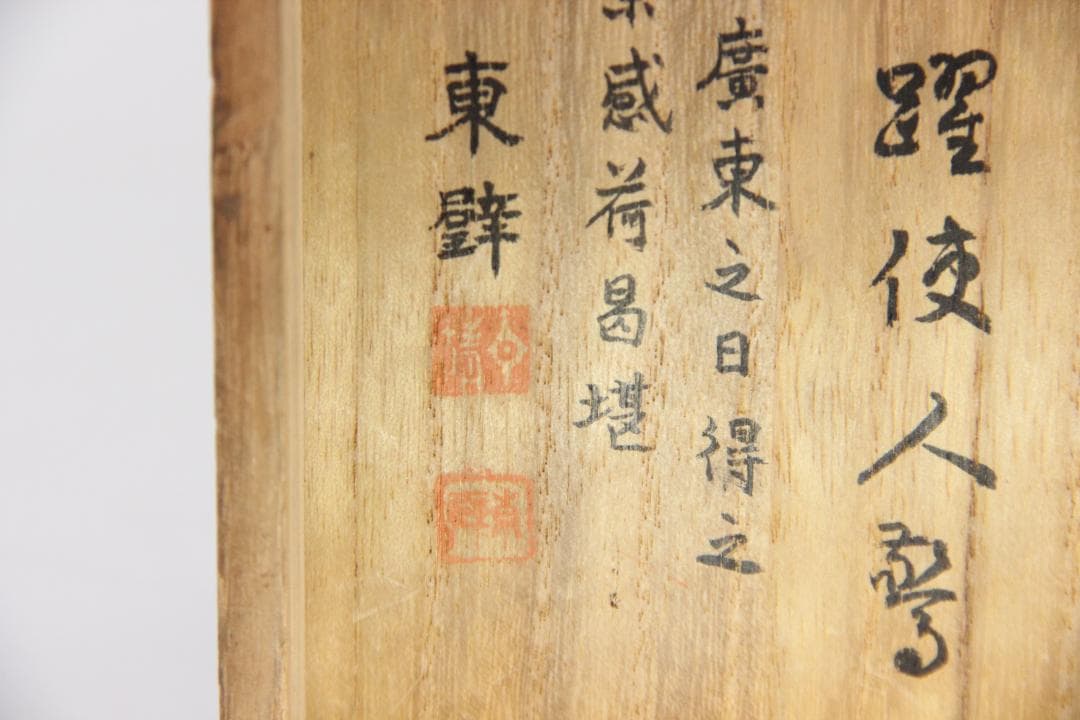 躍使人驚
廣東之日得之
感荷曷堪
東壁